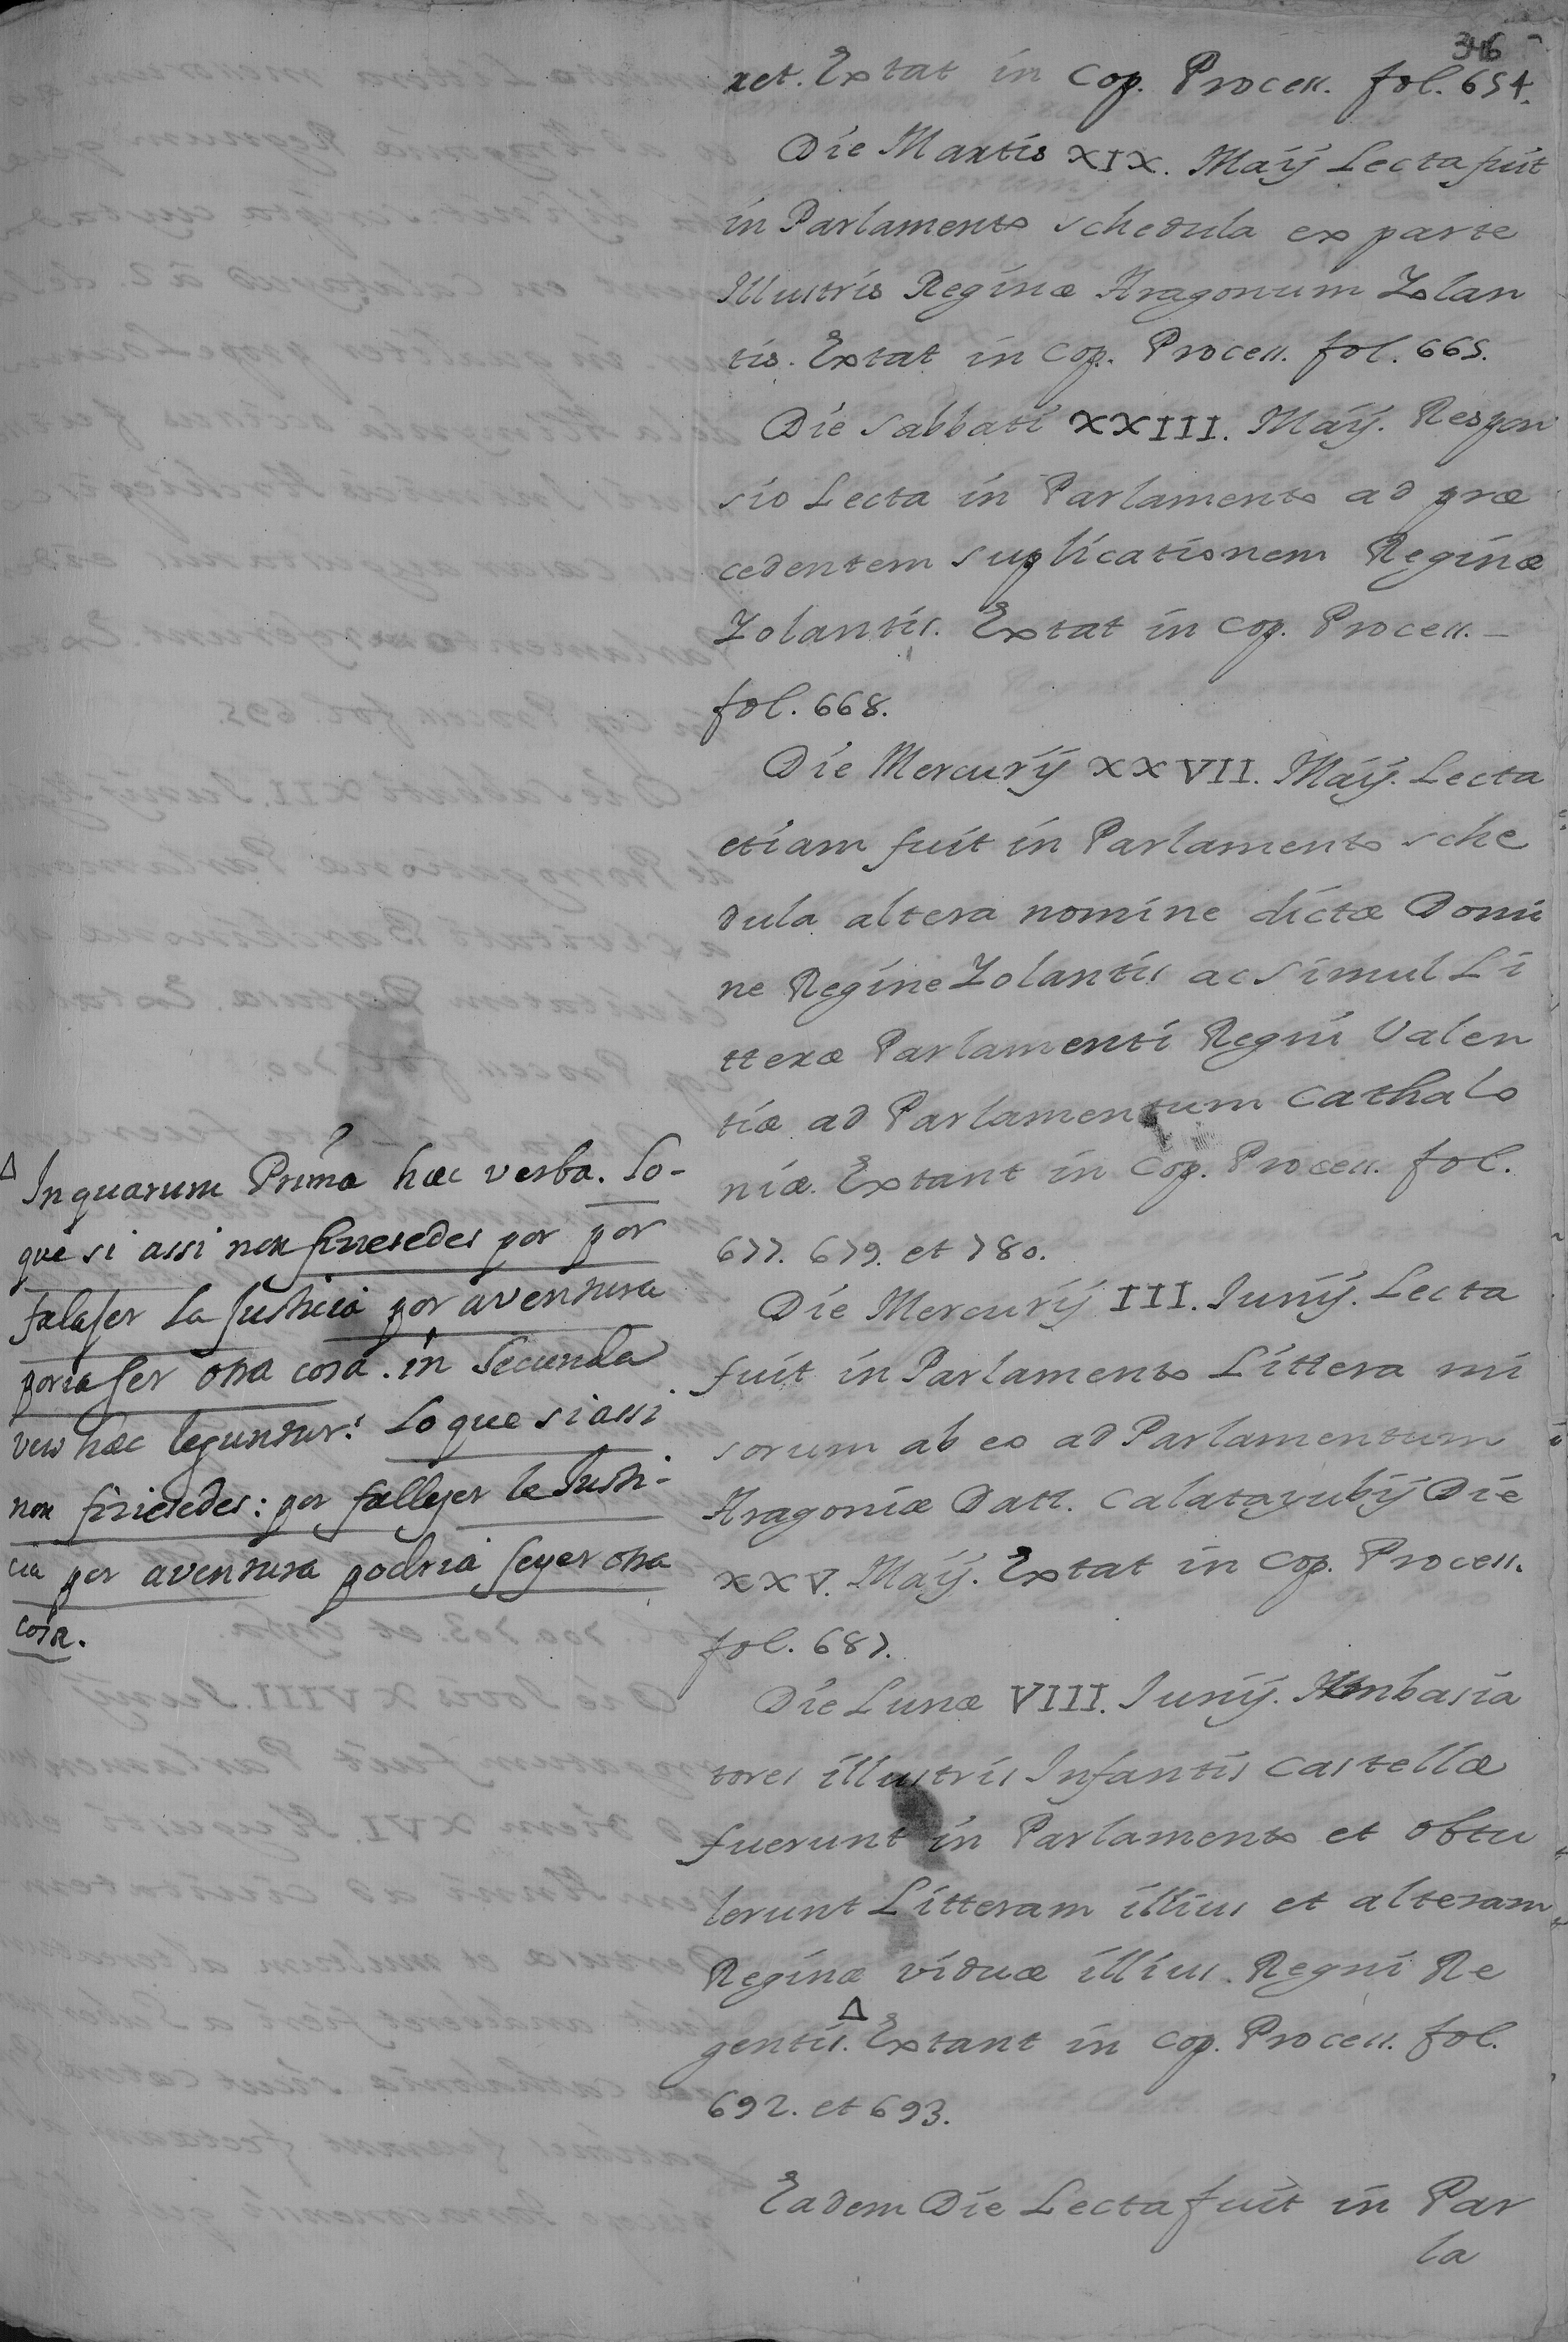 346
ret. Extat in Cop. Process. fol. 654.
Die Martis XIX. Maÿ Lecta fuit
in Parlamento schedula ex parte
Illustris Reginæ Aragonum Yolan
tis. Extat in Cop. Process. fol. 665.
Die Sabbati XXIII. Maÿ. Respon
sio Lecta in Parlamento ad præ
cedentem suplicationem Reginæ
Yolantis. Extat in Cop. Process. –
fol. 668.
Die Mercurÿ XXVII. Maÿ. Lecta
etiam fuit in Parlamento sche
dula altera nomine dictæ Domi
ne Regine Yolantis ac simul Li
tteræ Parlamenti Regni Valen
tiæ ad Parlamentum Cathalo
niæ. Extant in Cop. Process. fol.
677. 679. et 780.
Die Mercurÿ III. Junÿ. Lecta
fuit in Parlamento Littera mi
sorum ab eo ad Parlamentum
Aragoniæ Datt. Calatayubÿ Die
XXV. Maÿ. Extat in Cop. Process.
fol. 687.
Die Lunæ VIII. Junÿ. Ambasia
tores illustris Infantis Castellæ
fuerunt in Parlamento et obtu
lerunt Litteram illius et alteram
Reginæ viduæ illius Regni Re
gentis. Δ Extant in Cop. Process. fol.
692. et 693.
Eadem Die Lecta fuit in Par
la
Δ Inquarum Prima hæc verba. Lo-
que si assi non finesedes por por
falaser la Justicia por aventura
poria ser otra cosa. in Secunda
vero hæc leguntur: Lo que si assi
non firiesedes: por falleser la Justi-
cia por aventura podria seyer otra
cosa.